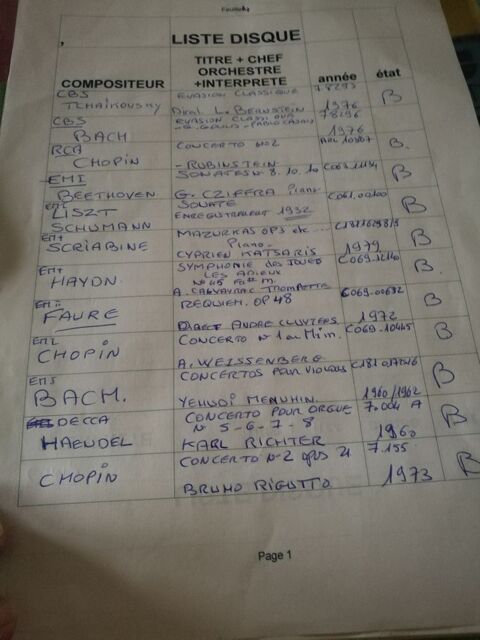 Feuille1
LISTE DISQUE
COMPOSITEUR
TITRE + CHEF
ORCHESTRE
+INTERPRETE
année
état
CBS
TCHAIKOVSKY
EVASION CLASSIQUE
L. BERNSTEIN
78295
1976
B
CBS
BACH
EVASION CLASSIQUE
G. GOULD - PABLO CASALS
78296
1976
RCA
CHOPIN
CONCERTO N°2
- RUBINSTEIN
B.
EMI
BEETHOVEN
SONATES N° 8. 10.
G. CZIFFRA Piano
B
LISZT
SCHUMANN
SONATE
ENREGISTREMENT 1932
C061.00100
B
EMI
SCRIABINE
MAZURKAS OP3 etc ....
Piano.
CYPRIEN KATSARIS
1979
B
EMI
HAYDN
SYMPHONIE des JOUETS
LES ADIEUX
N° 45 Fa# m.
THOMPETTE
C069.12140
B.
EMI
FAURE
REQUIEM. OP 48
DIRECT ANDRE CLUYTENS
C069.00632
1972
B
EMI
CHOPIN
CONCERTO N° 1 en Mi m.
A. WEISSENBERG
C069-10465
B
EMI
BACH.
CONCERTOS POUR VIOLONS
YEHUDI MENUHIN.
1960/1962
B
DECCA
HAENDEL
CONCERTO POUR ORGUE
N° 5-6-7-8
KARL RICHTER
7.004 A
1960
B
CHOPIN
CONCERTO N°2 opus 21
BRUNO RIGUTTO
7.155
1973
B
Page 1